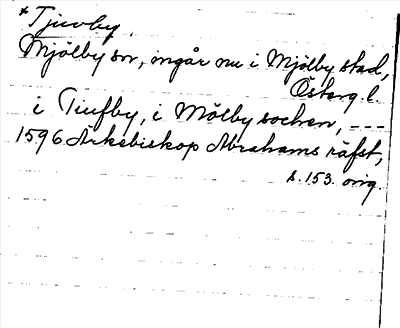 *Tjuvby.
Mjölby sn, ingår nu i Mjölby stad,
Österg. l.
i Tiufby, i Mölby sochen, ---
1596 Ärkebiskop Abrahams räfst,
s. 153. orig.